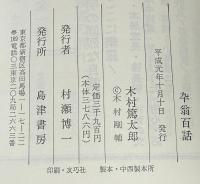 孕翁百話
平成元年十月十日 発行
木村篤太郎
©木村剛輔
定価三千九百円
(本体三七八六円)
発行者 村瀬博一
発行所 島津書房
東京都新宿区高田馬場一-二八-一七-二
〒160 電話〇三(二〇九)二六六三番
印刷・友巧社 製本・中四製本所